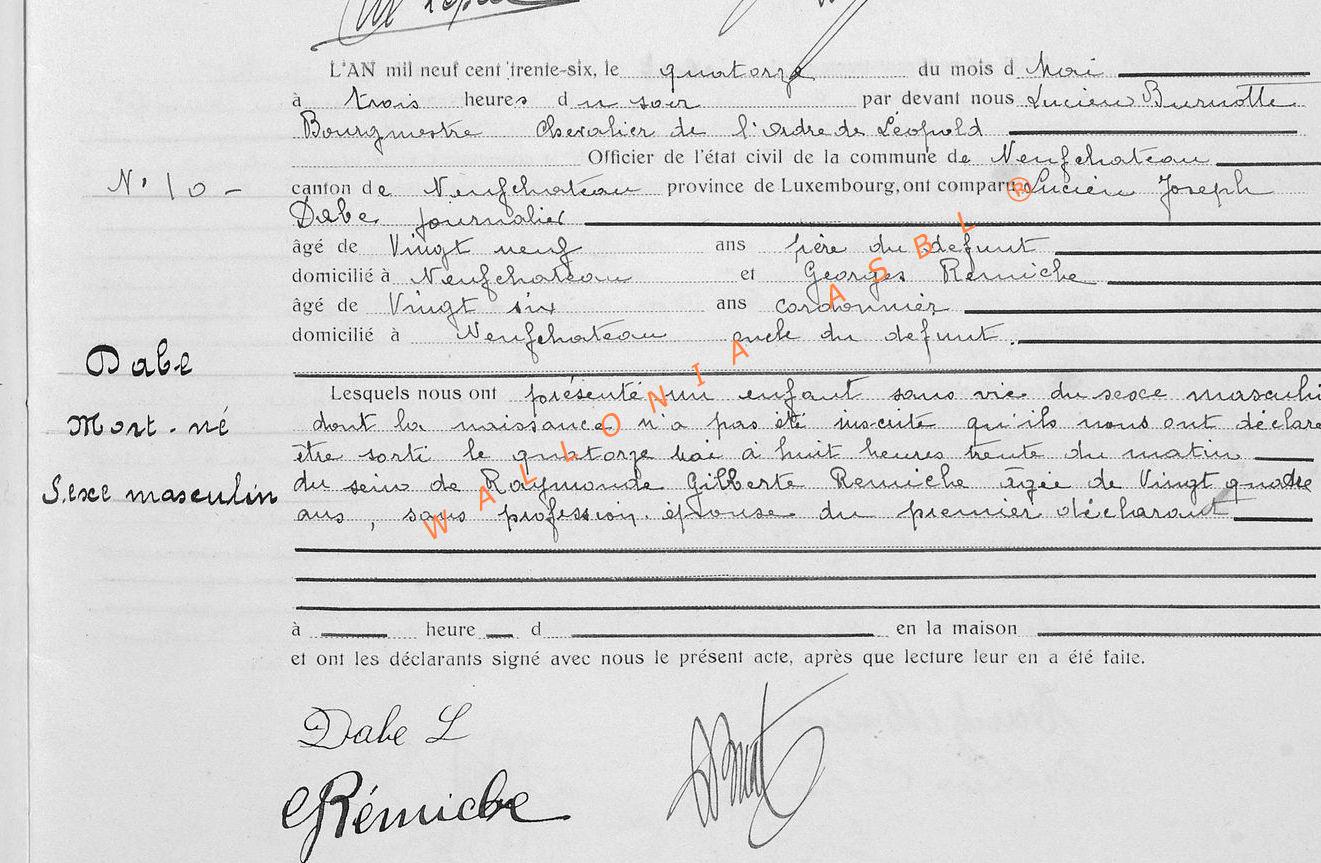 L'AN mil neuf cent trente-six, le quatorze du mois d Mai
à trois heures du soir par devant nous Lucien Burnotte
Bourgmestre Chevalier de l'Ordre de Léopold
Officier de l'état civil de la commune de Neufchateau
N° 10 - canton de Neufchateau province de Luxembourg, ont comparu Lucien Joseph
Dabe journalier
âgé de Vingt neuf ans père du défunt
domicilié à Neufchateau et Georges Remiche
âgé de Vingt six ans cordonnier
domicilié à Neufchateau oncle du défunt.
Dabe
Lesquels nous ont présenté un enfant sans vie du sexe masculi
Mort-né dont la naissance n'a pas été inscrite qu'ils nous ont déclaré
être sorti le quatorze mai à huit heures trente du matin
Sexe masculin du sein de Raymonde Gilberte Remiche âgée de Vingt quatre
ans, sans profession, épouse du premier déclarant
à heure d en la maison
et ont les déclarants signé avec nous le présent acte, après que lecture leur en a été faite.
Dabe L
GRémiche
WALLONIA ASBL ®